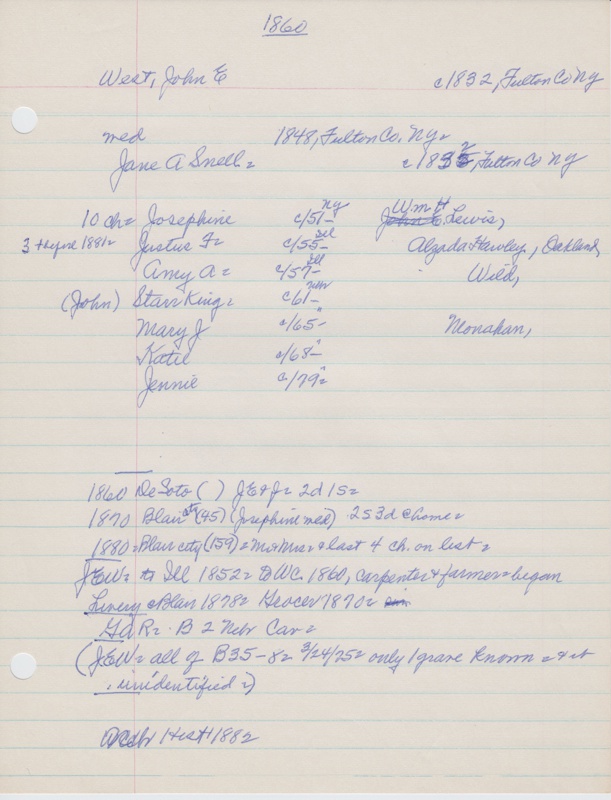 1860
West, John E c1832, Fulton Co NY
med 1848, Fulton Co. Ny=
Jane A Snell= c 1832, Fulton Co NY
10 ch= Josephine c/51- Ny Wm H John E Lewis,
3 1881= Justus F= c/55- Ill Alzada Hawley, Oakland,
Amy A= c/57- Ill Wild,
(John) Starr King= c61- Nebr
Mary J c/65- " Monahan,
Katie c/68- "
Jennie c/79 "
1860 DeSoto ( ) JE & J= 2d 1s=
1870 Blair city (45) (Josephine med) 2s 3d @ home=
1880= Blair city (159)= Mr & Mrs= & last 4 ch. on list=
JEW= to Ill 1852= to WC. 1860, carpenter & farmer= began
Livery @ Blair 1878= Grocer 1870=
GaR= B 2 Nebr Cav=
(JEW= all of B35-8= 3/24/75= only 1 grave known= & it
unidentified=)
Hist 1882